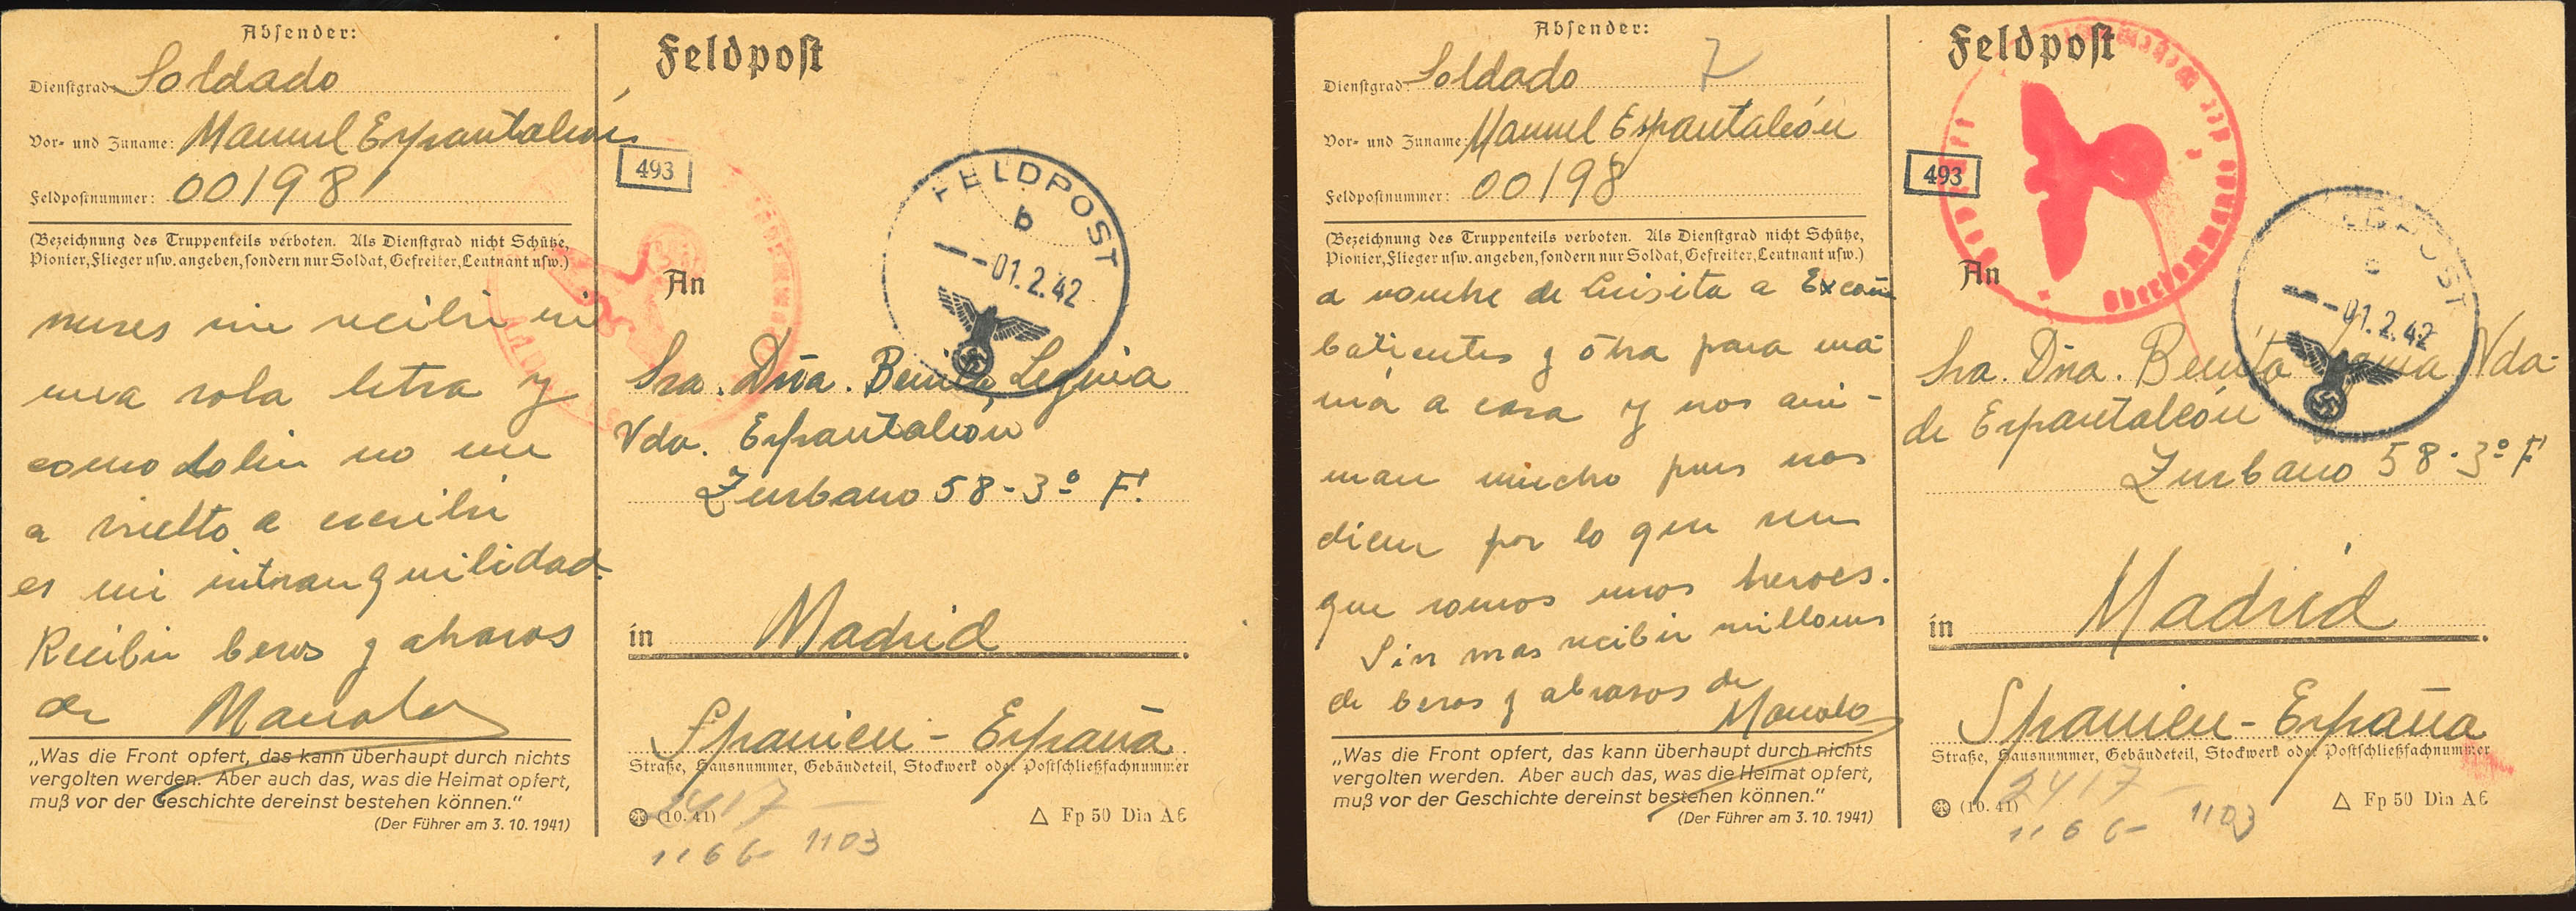 Absender:
Dienstgrad: Soldado
Vor- und Zuname: Manuel Espantaleón
Feldpostnummer: 00198
(Bezeichnung des Truppenteils verboten. Als Dienstgrad nicht Schütze,
Pionier, Flieger usw. angeben, sondern nur Soldat, Gefreiter, Leutnant usw.)
meses sin recibir ni
una sola letra y
como Lolin no me
a vuelto a escribir
es mi intranquilidad.
Recibir besos y abrazos
de Manolo
„Was die Front opfert, das kann überhaupt durch nichts
vergolten werden. Aber auch das, was die Heimat opfert,
muß vor der Geschichte dereinst bestehen können.“
(Der Führer am 3. 10. 1941)
Feldpost
493
FELDPOST
b
--01.2.42
An
Sra. Dña. Benita Leguia
Vda. Espantaleón
Zurbano 58-3º F.
in Madrid
Spanien - España
Straße, Hausnummer, Gebäudeteil, Stockwerk oder Postschließfachnummer
2417 -
(10. 41)
△ Fp 50 Din A6
1166- 1103
Absender:
7
Dienstgrad: Soldado
Vor- und Zuname: Manuel Espantaleón
Feldpostnummer: 00198
(Bezeichnung des Truppenteils verboten. Als Dienstgrad nicht Schütze,
Pionier, Flieger usw. angeben, sondern nur Soldat, Gefreiter, Leutnant usw.)
a nombre de Luisita a Excom
batientes y otra para ma-
má a casa y nos ani-
man mucho pues nos
dicen por lo que
que somos unos heroes.
Sin mas recibir millones
de besos y abrazos de
Manolo
„Was die Front opfert, das kann überhaupt durch nichts
vergolten werden. Aber auch das, was die Heimat opfert,
muß vor der Geschichte dereinst bestehen können.“
(Der Führer am 3. 10. 1941)
Feldpost
493
Oberkommando
--01.2.42
An
Sra. Dña. Benita Leguia Vda.
de Espantaleón
Zurbano 58-3º F.
in Madrid
Spanien - España
Straße, Hausnummer, Gebäudeteil, Stockwerk oder Postschließfachnummer
2417 -
(10. 41)
△ Fp 50 Din A6
1166- 1103